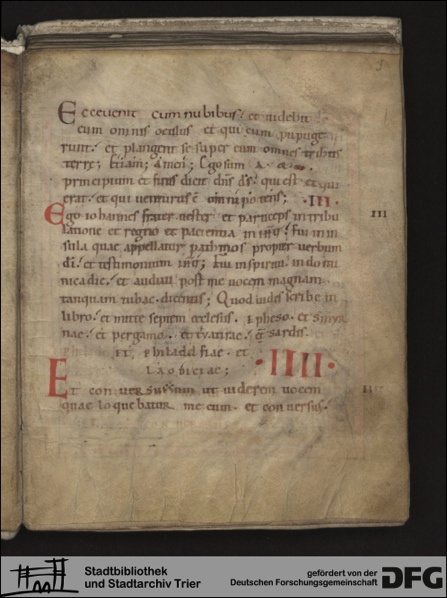 Ecce uenit cum nubibus et uidebit
eum omnis oculus et qui eum pupuge
runt. et plangent se super eum omnes tribus
terre; Etiam; Amen; Ego sum
principium et finis dicit dns ds. qui est et qui
erat. et qui uenturus e omnipotens; ·III·
Ego iohannes frater uester et particeps in tribu
III
latione et regno et pacientia in
sula quae appellatur pathmos propter uerbum
di. et testimonium fui in spiritu in domi
nica die. et audiui post me uocem magnam
tanquam tubae. dicentis; Quod uides scribe in
libro. et mitte septem ecclesiis. Epheso. et smyr
nae. et pergamo. et tyatirae. et sardis.
et philadelfiae. et
laodiciae; ·IIII·
Et conuersus sum ut uiderem uocem
quae loquebatur mecum. et conuersus.
Stadtbibliothek
und Stadtarchiv Trier
gefördert von der
Deutschen Forschungsgemeinschaft
DFG